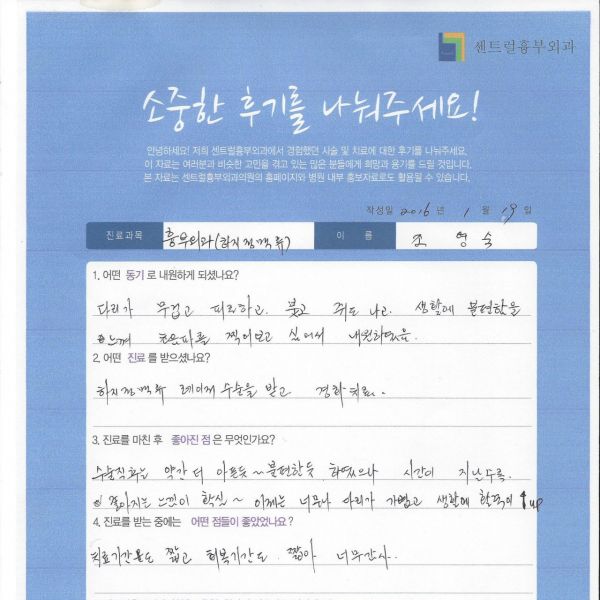 센트럴흉부외과
소중한 후기를 나눠주세요!
안녕하세요! 저희 센트럴흉부외과에서 경험했던 시술 및 치료에 대한 후기를 나눠주세요.
이 자료는 여러분과 비슷한 고민을 겪고 있는 많은 분들에게 희망과 용기를 드릴 것입니다.
본 자료는 센트럴흉부외과의원의 홈페이지와 병원 내부 홍보자료로도 활용될 수 있습니다.
작성일 2016 년 1 월 19 일
진료과목 흉부외과(하지정맥류) 이 름 조 영 숙
1. 어떤 동기 로 내원하게 되셨나요?
다리가 무겁고 피곤하고. 붓고 쥐도 나고. 생활에 불편함을
느껴 초음파를 찍어보고 싶어서 내원하였음.
2. 어떤 진료 를 받으셨나요?
하지정맥류 레이저 수술을 받고 경화치료.
3. 진료를 마친 후 좋아진 점 은 무엇인가요?
수술직후는 약간 더 아픈듯~불편한듯 하였으나 시간이 지날수록.
좋아지는 느낌이 확실~ 이제는 너무나 다리가 가볍고 생활에 활력이 ↑up
4. 진료를 받는 중에는 어떤 점들이 좋았었나요?
치료기간도 짧고 회복기간도 짧아 너무감사..